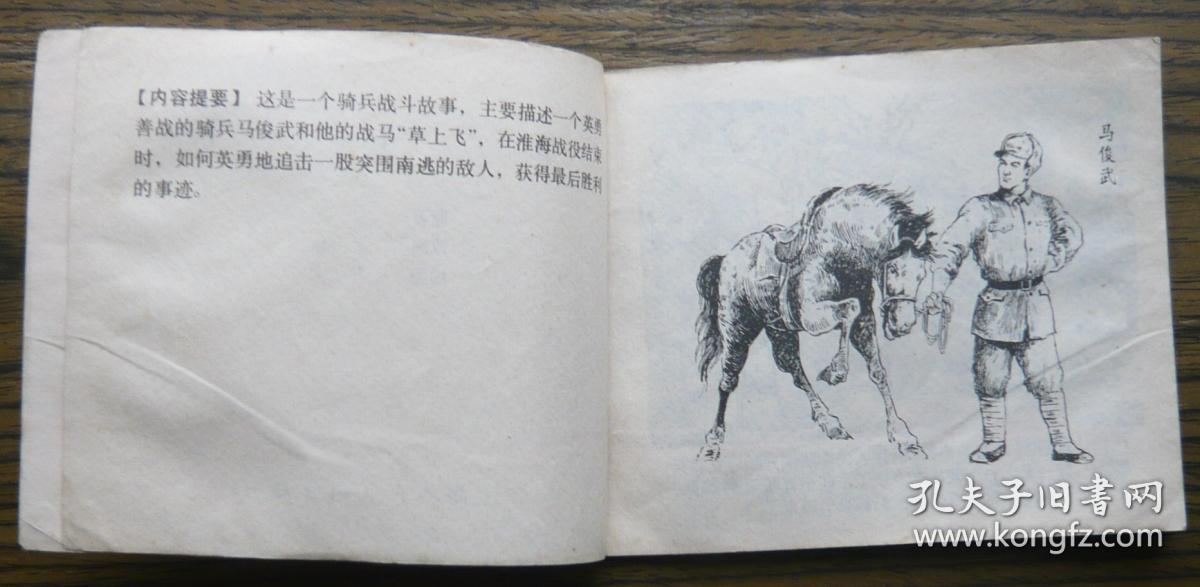 【内容提要】 这是一个骑兵战斗故事，主要描述一个英勇
善战的骑兵马俊武和他的战马“草上飞”，在淮海战役结束
时，如何英勇地追击一股突围南逃的敌人，获得最后胜利
的事迹。
马俊武
孔夫子旧书网
www.kongfz.com